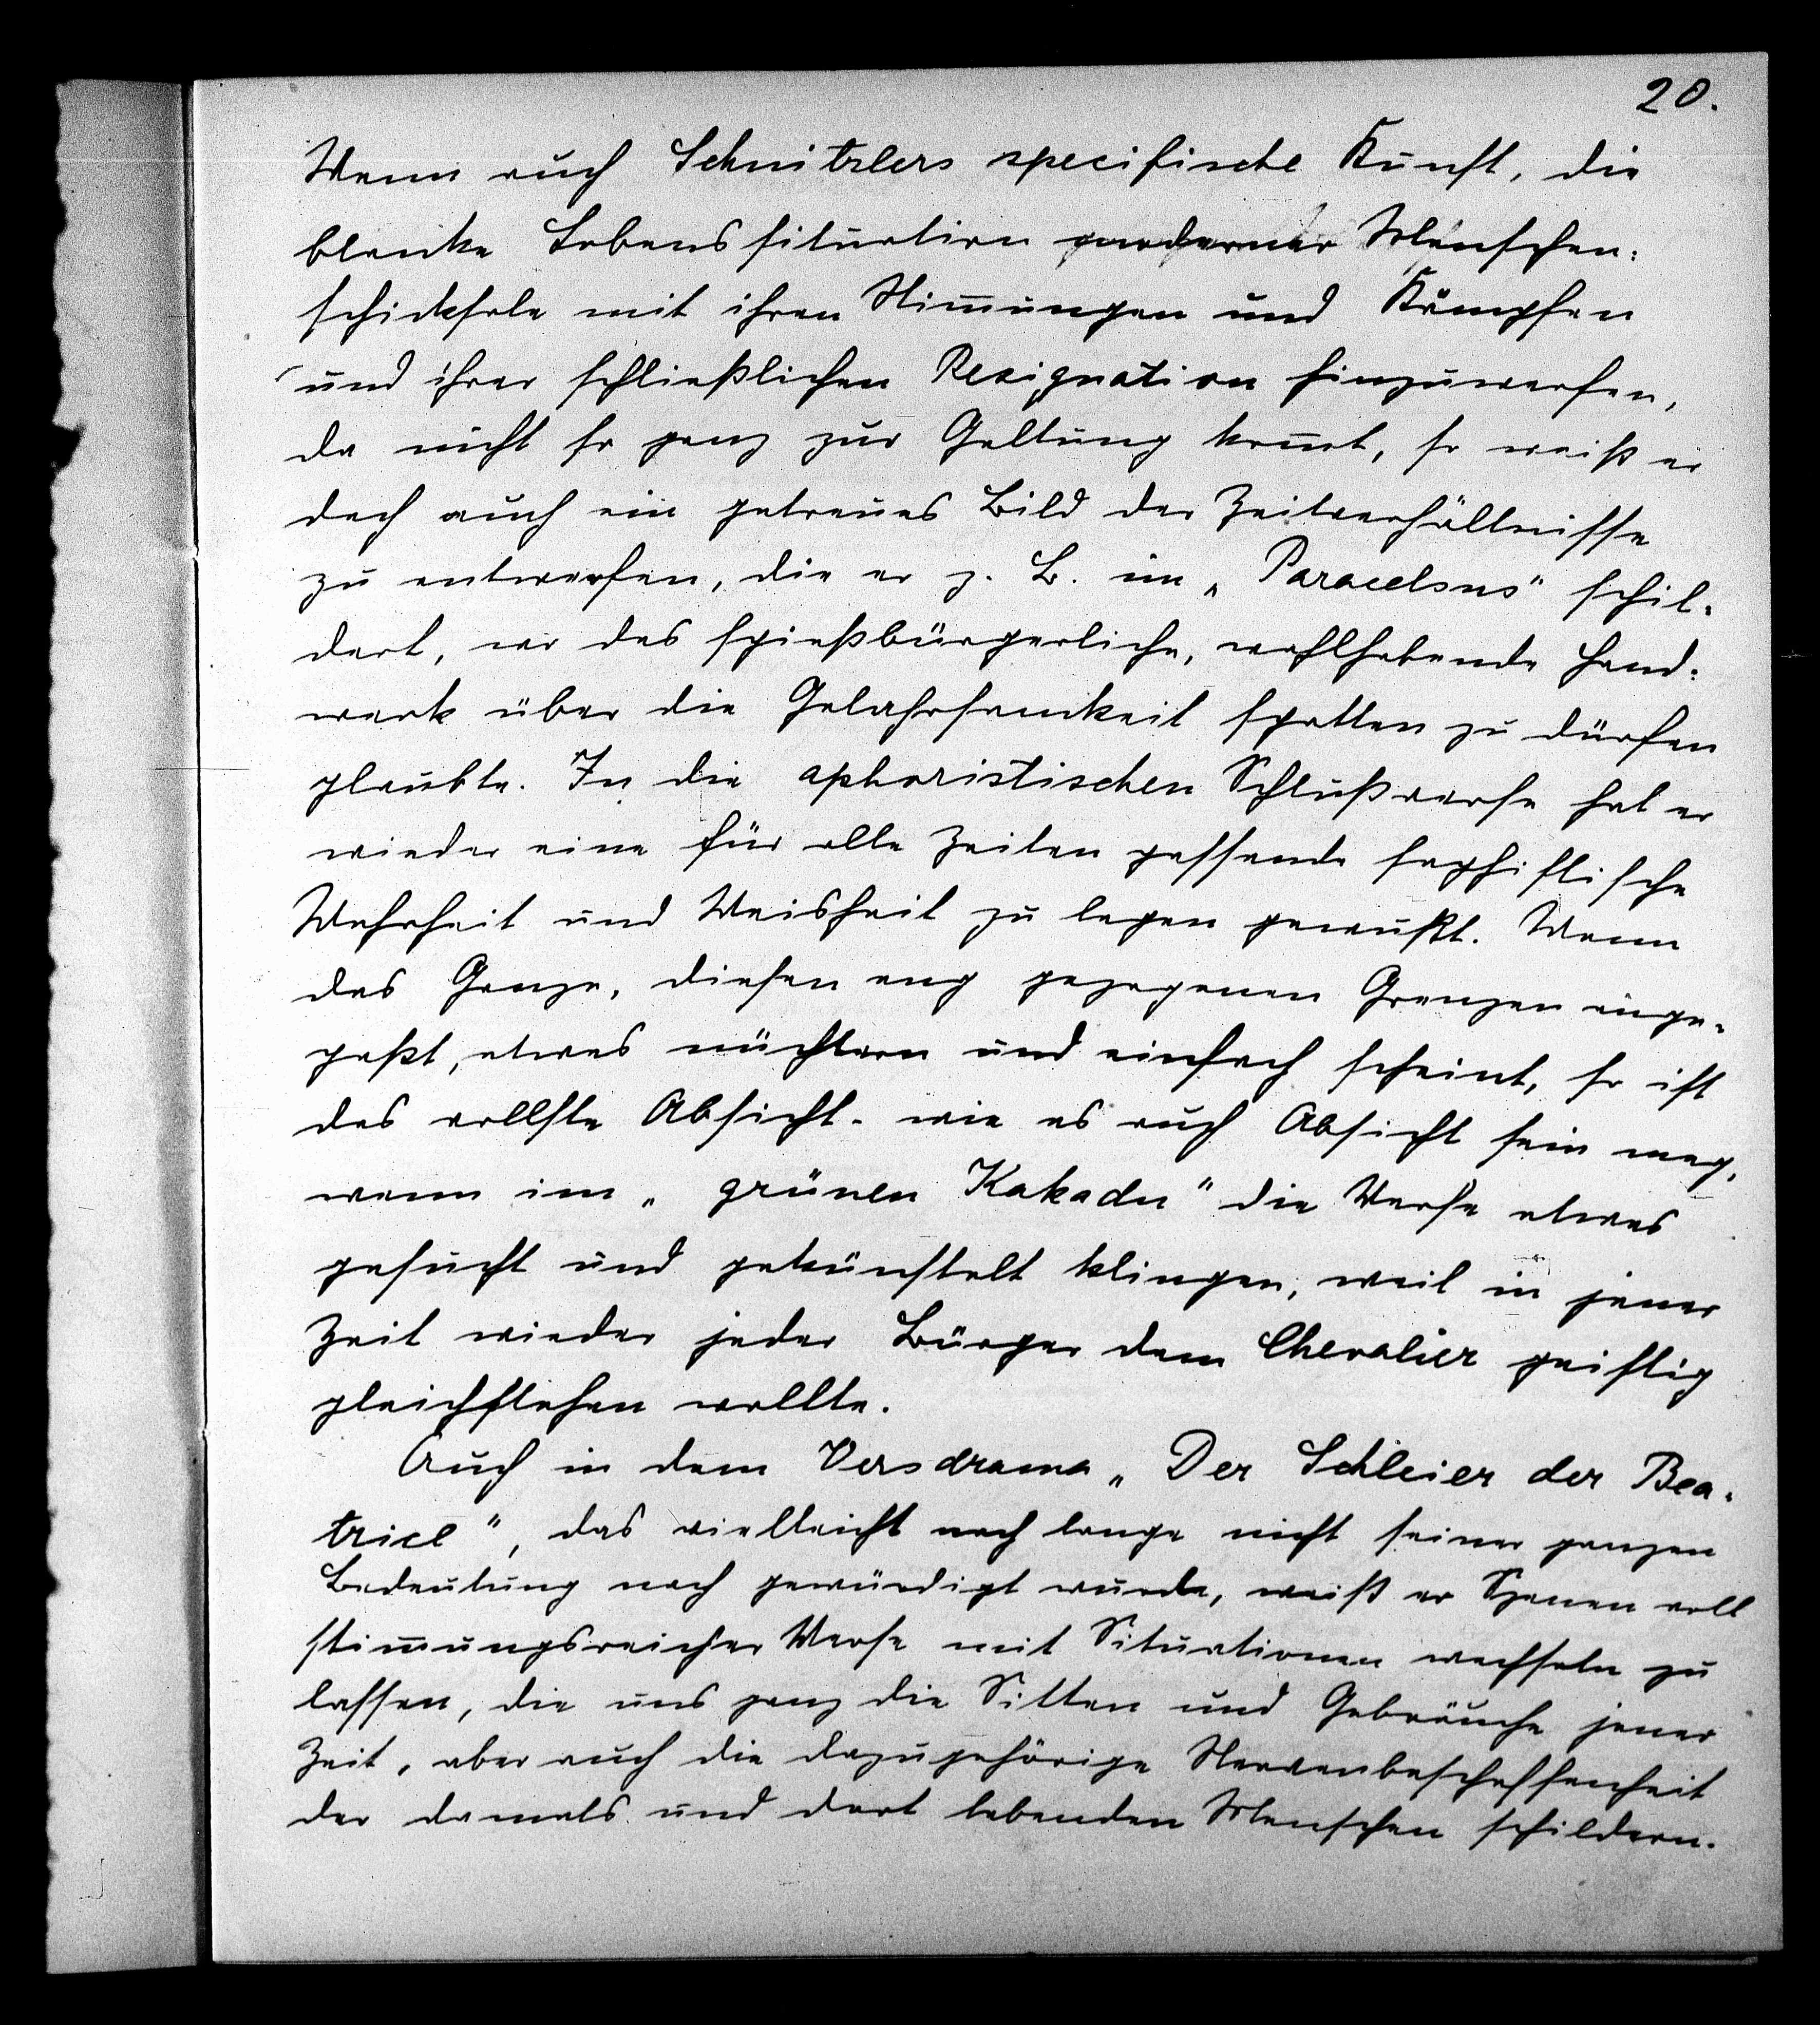 20.
Wenn auch Schnitzlers specifische Kunst, die
blanke Lebenssituation moderner Menschen-
schicksale mit ihren Stim̄ungen und Kämpfen
und ihrer schließlichen Resignation hinzuwerfen,
da nicht so ganz zur Geltung kom̄t, so weiß er
doch auch ein getreues Bild der Zeitverhältnisse
zu entwerfen, die er z. B. im „Paracelsus" schil-
dert, wo das spießbürgerliche, wohlhabende Hand-
werk über die Gelahrsamkeit spotten zu dürfen
glaubte. In die aphoristischen Schlußverse hat er
wieder eine für alle Zeiten passende sophistische
Wahrheit und Weisheit zu legen gewußt. Wenn
das Ganze, diesen eng gezogenen Grenzen einge-
paßt, etwas nüchtern und einfach scheint, so ist
das vollste Absicht - wie es auch Absicht sein mag,
wenn im „grünen Kakadu" die Verse etwas
gesucht und gekünstelt klingen, weil in jener
Zeit wieder jeder Bürger dem Chevalier geistig
gleichstehen wollte.
Auch in dem Versdrama „Der Schleier der Bea-
trice", das vielleicht noch lange nicht seiner ganzen
Bedeutung nach gewürdigt wurde, weiß er Szenen voll
stim̄ungsreicher Verse mit Situationen wechseln zu
lassen, die uns ganz die Sitten und Gebräuche jener
Zeit, aber auch die dazugehörige Nervenbeschaffenheit
der damals und dort lebenden Menschen schildern.